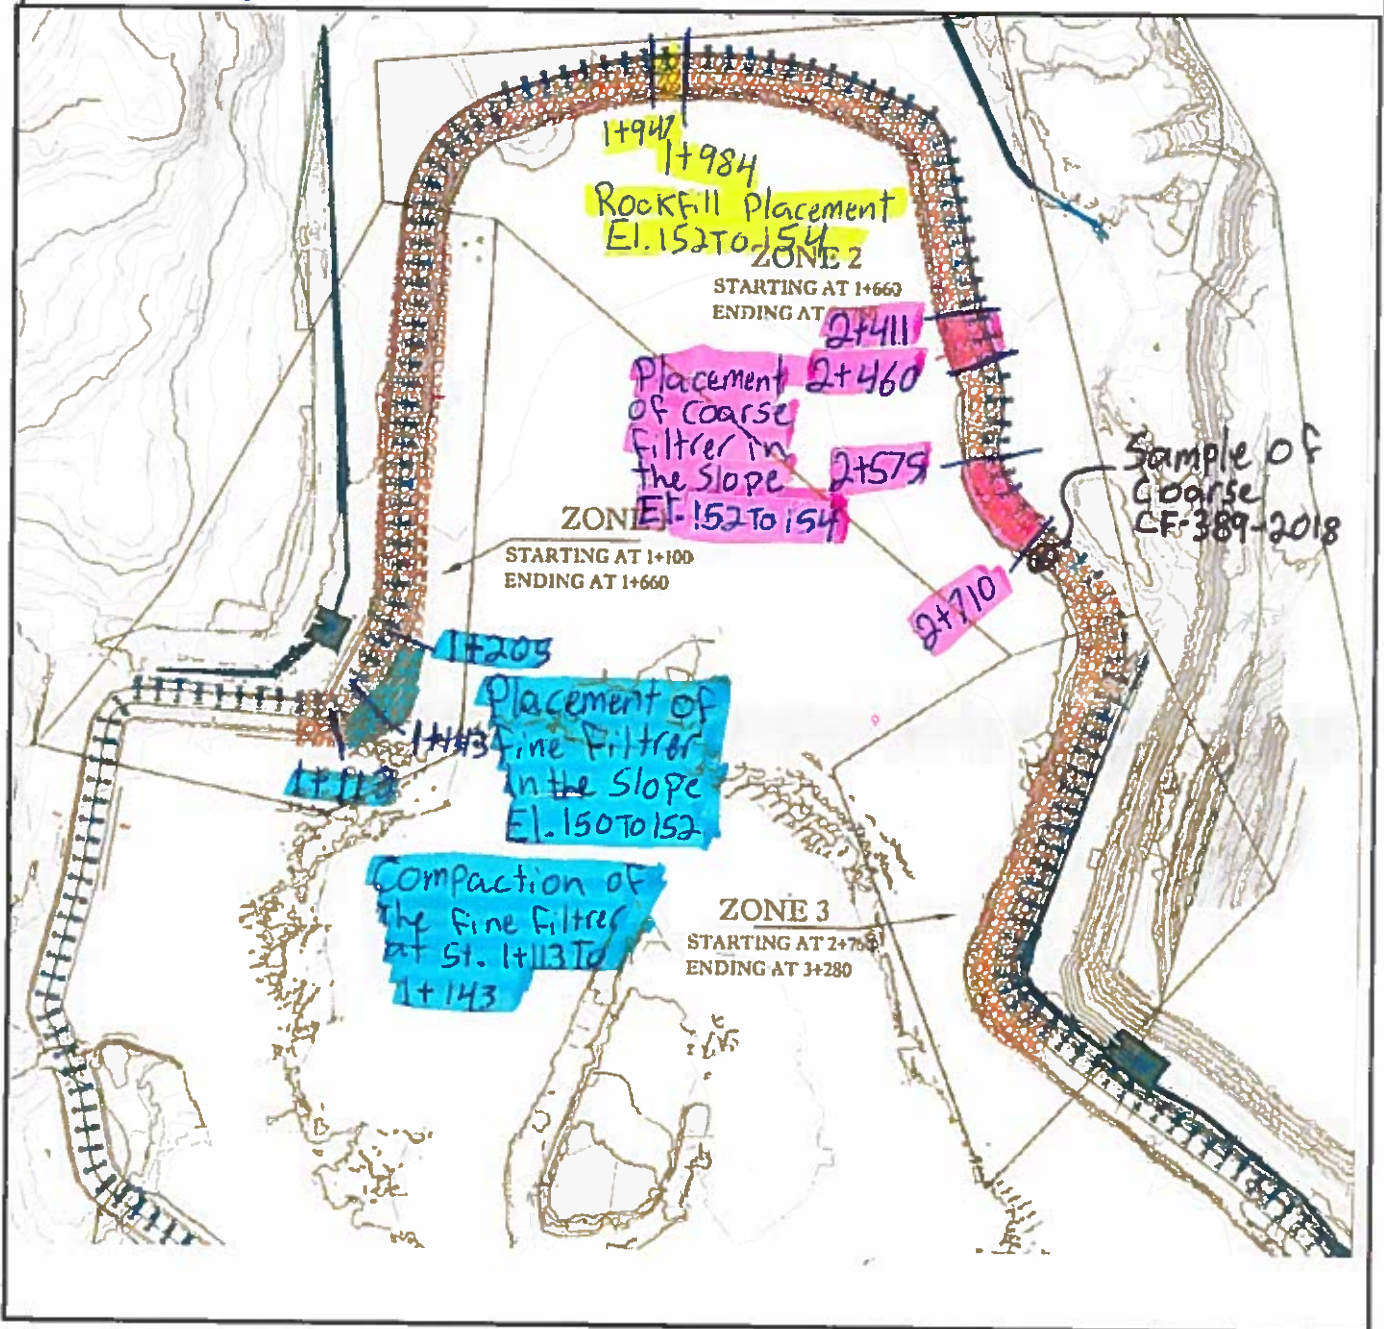 1+947
1+984
Rockfill Placement
El. 152 To 154
ZONE 2
STARTING AT 1+660
ENDING AT
2+411
2+460
Placement
of Coarse
Filtrer in
the Slope
El. 152 To 154
2+575
2+710
Sample of
Coarse
CF-389-2018
ZONE
STARTING AT 1+100
ENDING AT 1+660
1+205
1+143
1+113
Placement of
fine Filtrer
in the Slope
El. 150 To 152
Compaction of
the fine filtrer
at St. 1+113 To
1+143
ZONE 3
STARTING AT 2+760
ENDING AT 3+280